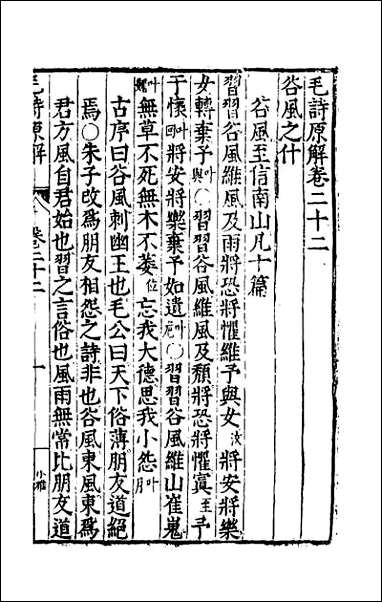 毛詩原解卷二十二
谷風之什
谷風至信南山凡十篇
習習谷風維風及雨將恐將懼維予與女汝將安將樂
女轉棄予叶與○習習谷風維風及頹將恐將懼寘至予
于懷叶回將安將樂棄予如遺叶○習習谷風維山崔嵬
叶無草不死無木不萎位忘我大德思我小怨叶
古序曰谷風刺幽王也毛公曰天下俗薄朋友道絕
焉○朱子改爲朋友相怨之詩非也谷風東風東爲
君方風自君始也習之言俗也風雨無常比朋友道
毛詩原解
卷二十二
一
小雅